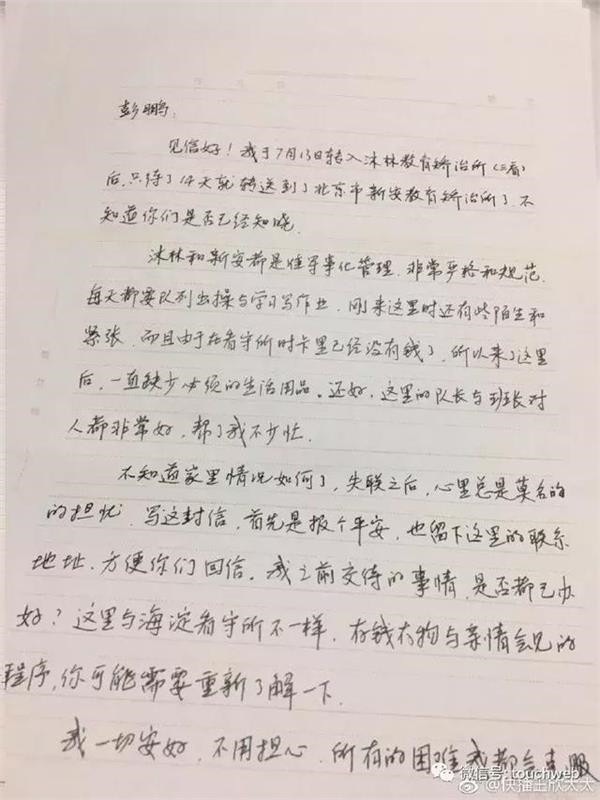 彭鹏：
见信好！我于7月13日转入沐林教育矫治所（三看）
后，只待了14天就转送到了北京市新安教育矫治所了，不
知道你们是否已经知晓。
沐林和新安都是准军事化管理，非常严格和规范，
每天都要队列出操与学习写作业，刚来这里时还有些陌生和
紧张，而且由于在看守所时卡里已经没有钱了，所以来了这里
后，一直缺少必须的生活用品。还好，这里的队长与班长对
人都非常好，帮了我不少忙。
不知道家里情况如何了，失联之后，心里总是莫名的
的担忧，写这封信，首先是报个平安，也留下这里的联系
地址，方便你们回信。我之前交待的事情，是否都已办
好？这里与海淀看守所不一样，存钱衣物与亲情会见的
程序，你可能需要重新了解一下。
我一切安好，不用担心，所有的困难我都会克服
微信号：touchweb
@快播王欣太太